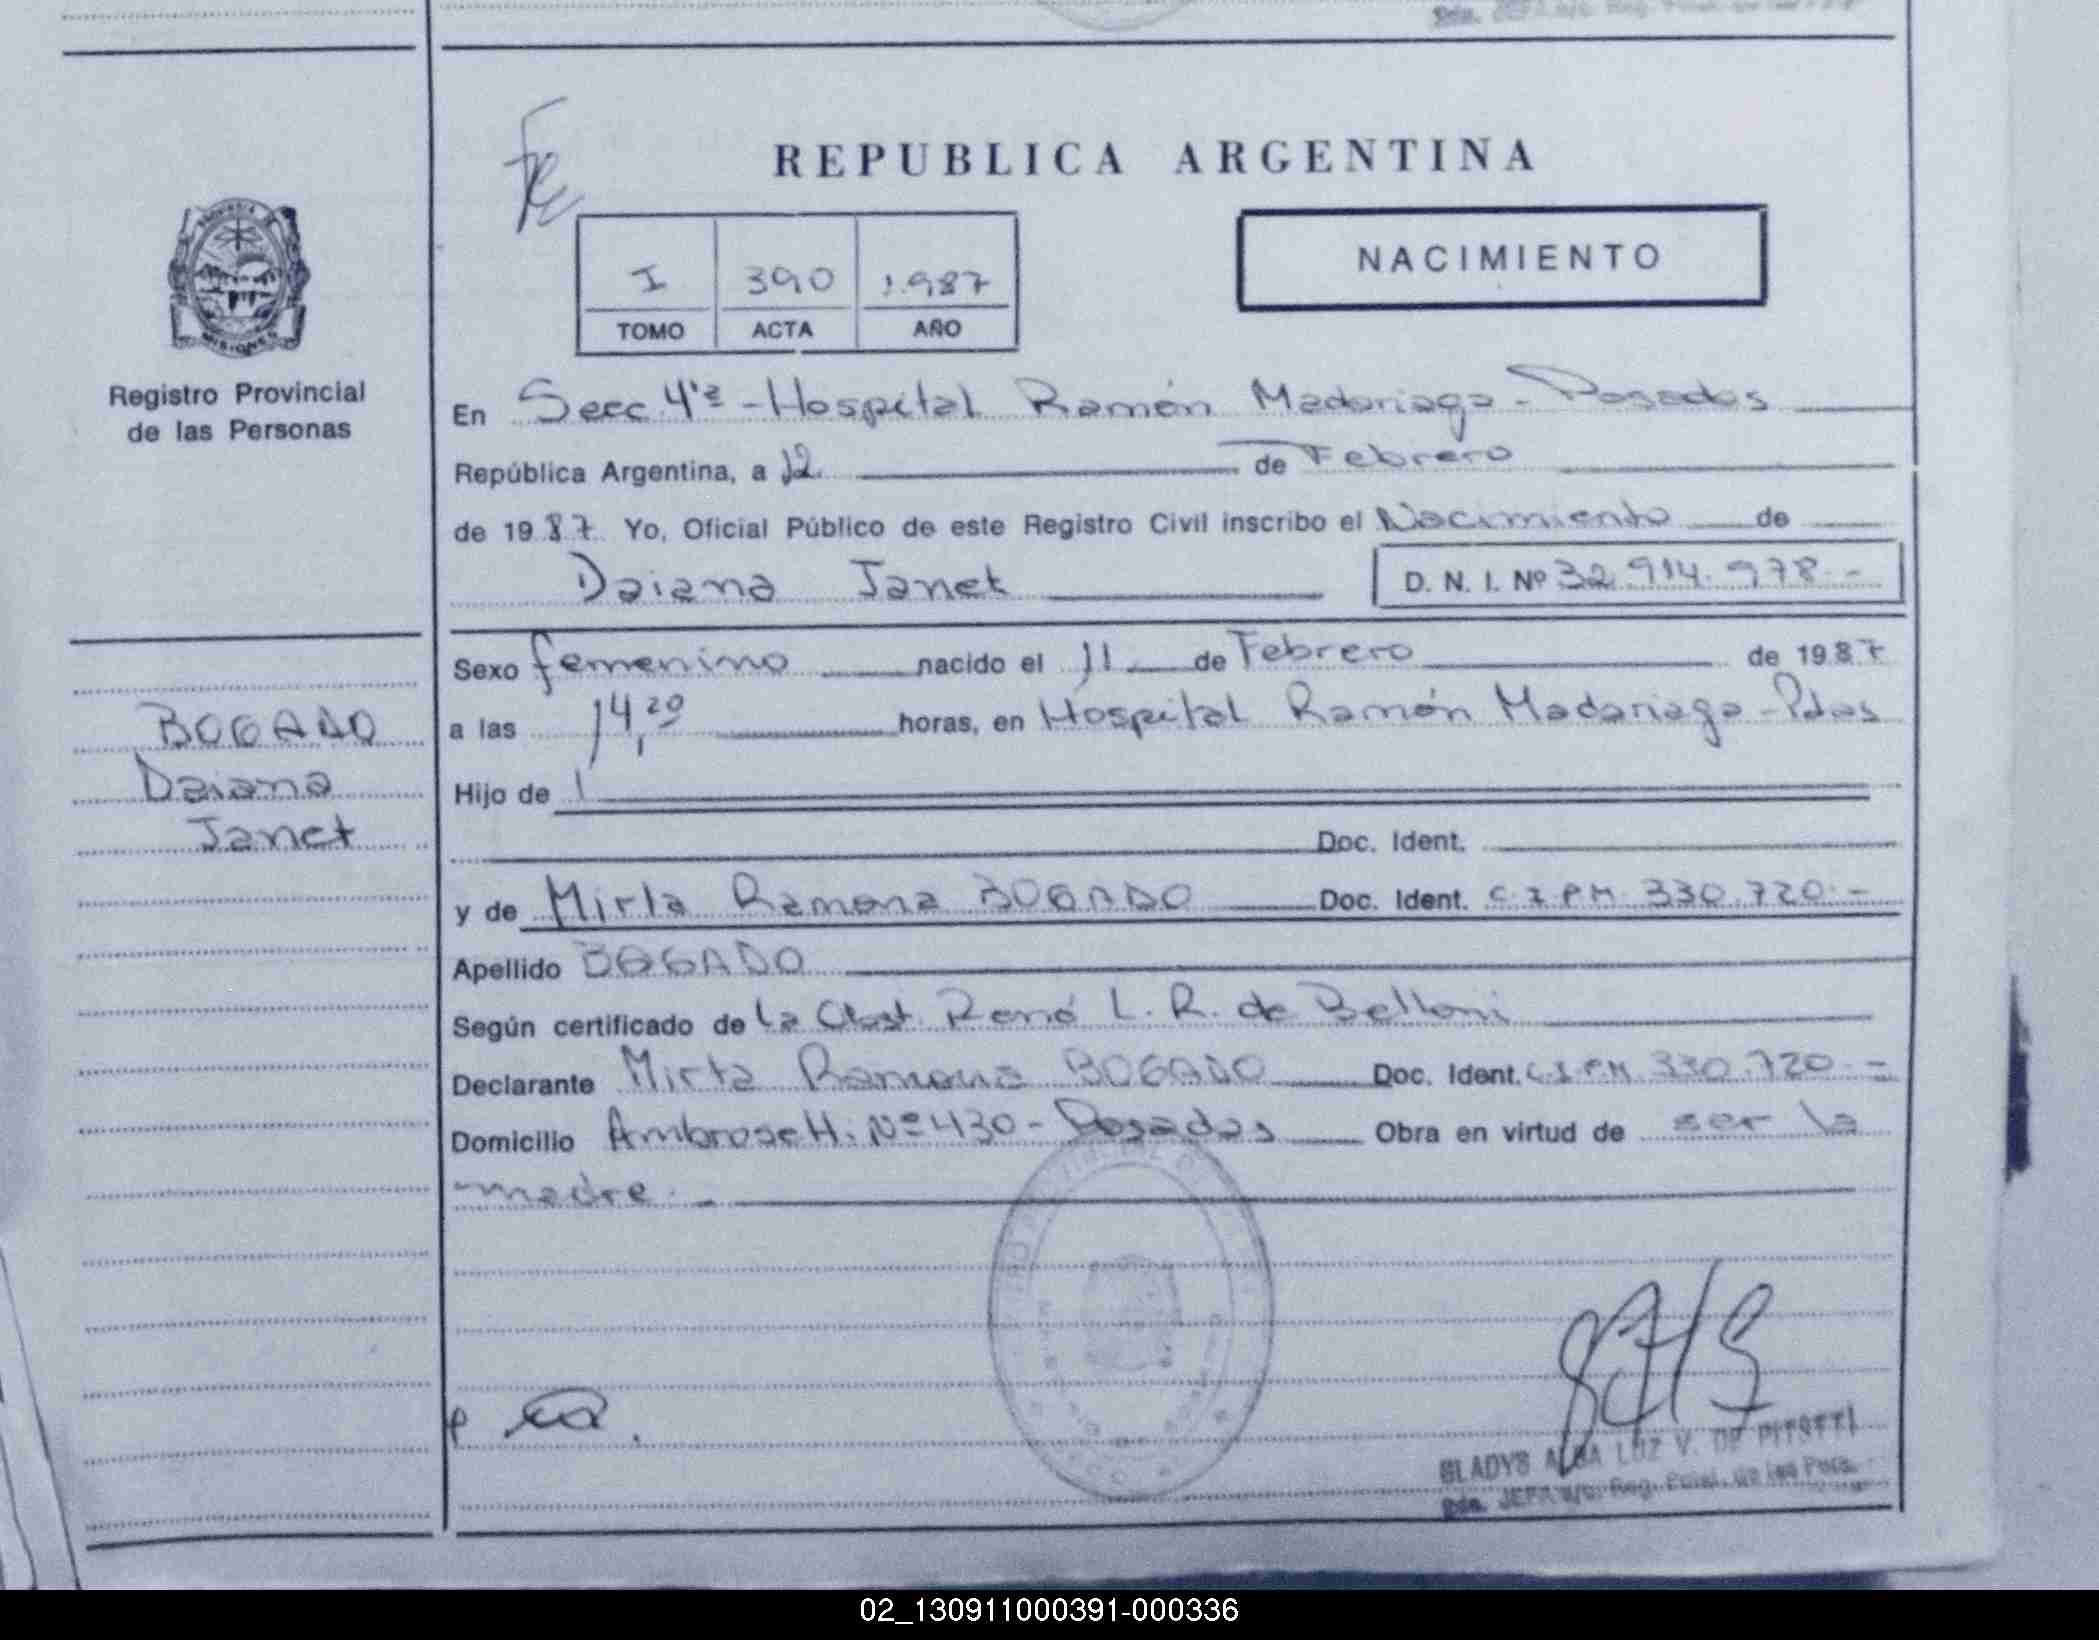 REPUBLICA ARGENTINA
I 390 1.987
TOMO ACTA AÑO
NACIMIENTO
PROVINCIA DE
MISIONES
Registro Provincial
de las Personas
En Secc. 4ta - Hospital Ramón Madariaga - Posadas
República Argentina, a 12 de Febrero
de 1987. Yo, Oficial Público de este Registro Civil inscribo el Nacimiento de
Daiana Janet D. N. I. Nº 32.914.978.-
Sexo femenino nacido el 11 de Febrero de 1987
a las 14,20 horas, en Hospital Ramón Madariaga - Pdas
Hijo de
Doc. Ident.
y de Mirta Ramona BOGADO Doc. Ident. C.I.P.M. 330.720.-
Apellido BOGADO
Según certificado de la Obst. René L. R. de Belloni
Declarante Mirta Ramona BOGADO Doc. Ident. C.I.P.M. 330.720.-
Domicilio Ambrosetti Nº 430 - Posadas Obra en virtud de ser la
madre.-
BOGADO
Daiana
Janet
GLADYS ALBA LUZ V. DE
JEFA Reg. de las Pers.
02_130911000391-000336